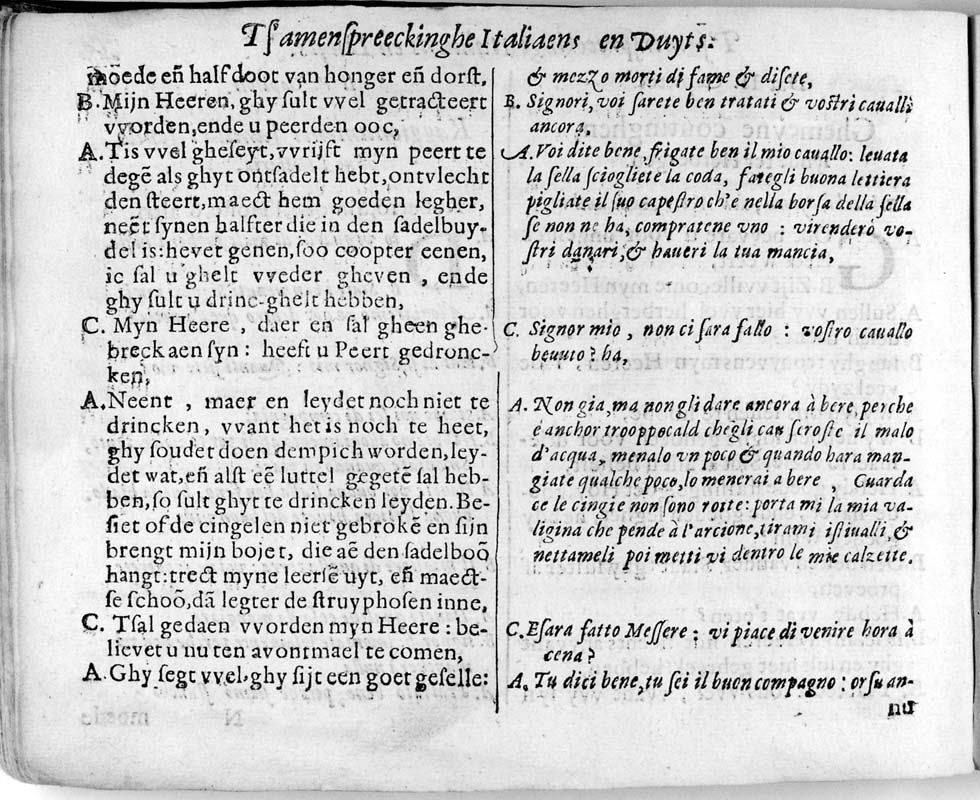 Tſamenſpreeckinghe Italiaens en Duytſ.
moede en̄ half doot van honger en̄ dorſt,
B. Mijn Heeren, ghy ſult vvel getracteert
vvorden, ende u peerden ooc,
A. Tis vvel gheſeyt, vvrijft myn peert te
degē als ghyt ontſadelt hebt, ontvlecht
den ſteert, maect hem goeden legher,
neēt ſynen halfter die in den ſadelbuy-
del is: hevet genen, ſoo coopter eenen,
ic ſal u ghelt vveder gheven, ende
ghy ſult u drinc-ghelt hebben,
C. Myn Heere, daer en ſal gheen ghe-
breck aen ſyn: heeft u Peert gedronc-
ken,
A. Neent, maer en leydet noch niet te
drincken, vvant het is noch te heet,
ghy ſoudet doen dempich worden, ley-
det wat, en̄ alſt eē luttel gegetē ſal heb-
ben, ſo ſult ghyt te drincken leyden. Be-
ſiet of de cingelen niet gebrokē en ſijn
brengt mijn bojet, die aē den ſadelboō
hangt: trect myne leerſē uyt, en̄ maect-
ſe ſchoō, dā legter de ſtruyphoſen inne,
C. Tſal gedaen vvorden myn Heere: be-
lievet u nu ten avontmael te comen,
A. Ghy ſegt vvel, ghy ſijt een goet geſelle:
& mezzo morti di fame & diſete,
B. Signori, voi ſarete ben tratati & voſtri cavalli
ancora,
A. Voi dite bene, frigate ben il mio cauallo: leuata
la ſella ſciogliete la coda, fategli buona lettiera
pigliate il ſuo capeſtro ch'e nella borſa della ſella
ſe non ne ha, compratene vno: virendero vo-
ſtri danari, & haueri la tua mancia,
C. Signor mio, non ci ſara fallo: voſtro cauallo
beuuto? ha,
A. Non gia, ma non gli dare ancora à bere, perche
e anchor trooppocald chegli cau ſcroſte il malo
d'acqua, menalo vn poco & quando hara man-
giate qualche poco, lo menerai a bere, Cuarda
ce le cingie non ſono rotte: porta mi la mia va-
ligina che pende à l'arcione, tirami iſtiualli, &
nettameli poi metti vi dentro le mie calzette,
C. Eſara fatto Meſſere: vi piace di venire hora à
cena?
A. Tu dici bene, tu ſei il buon compagno: orſu an-